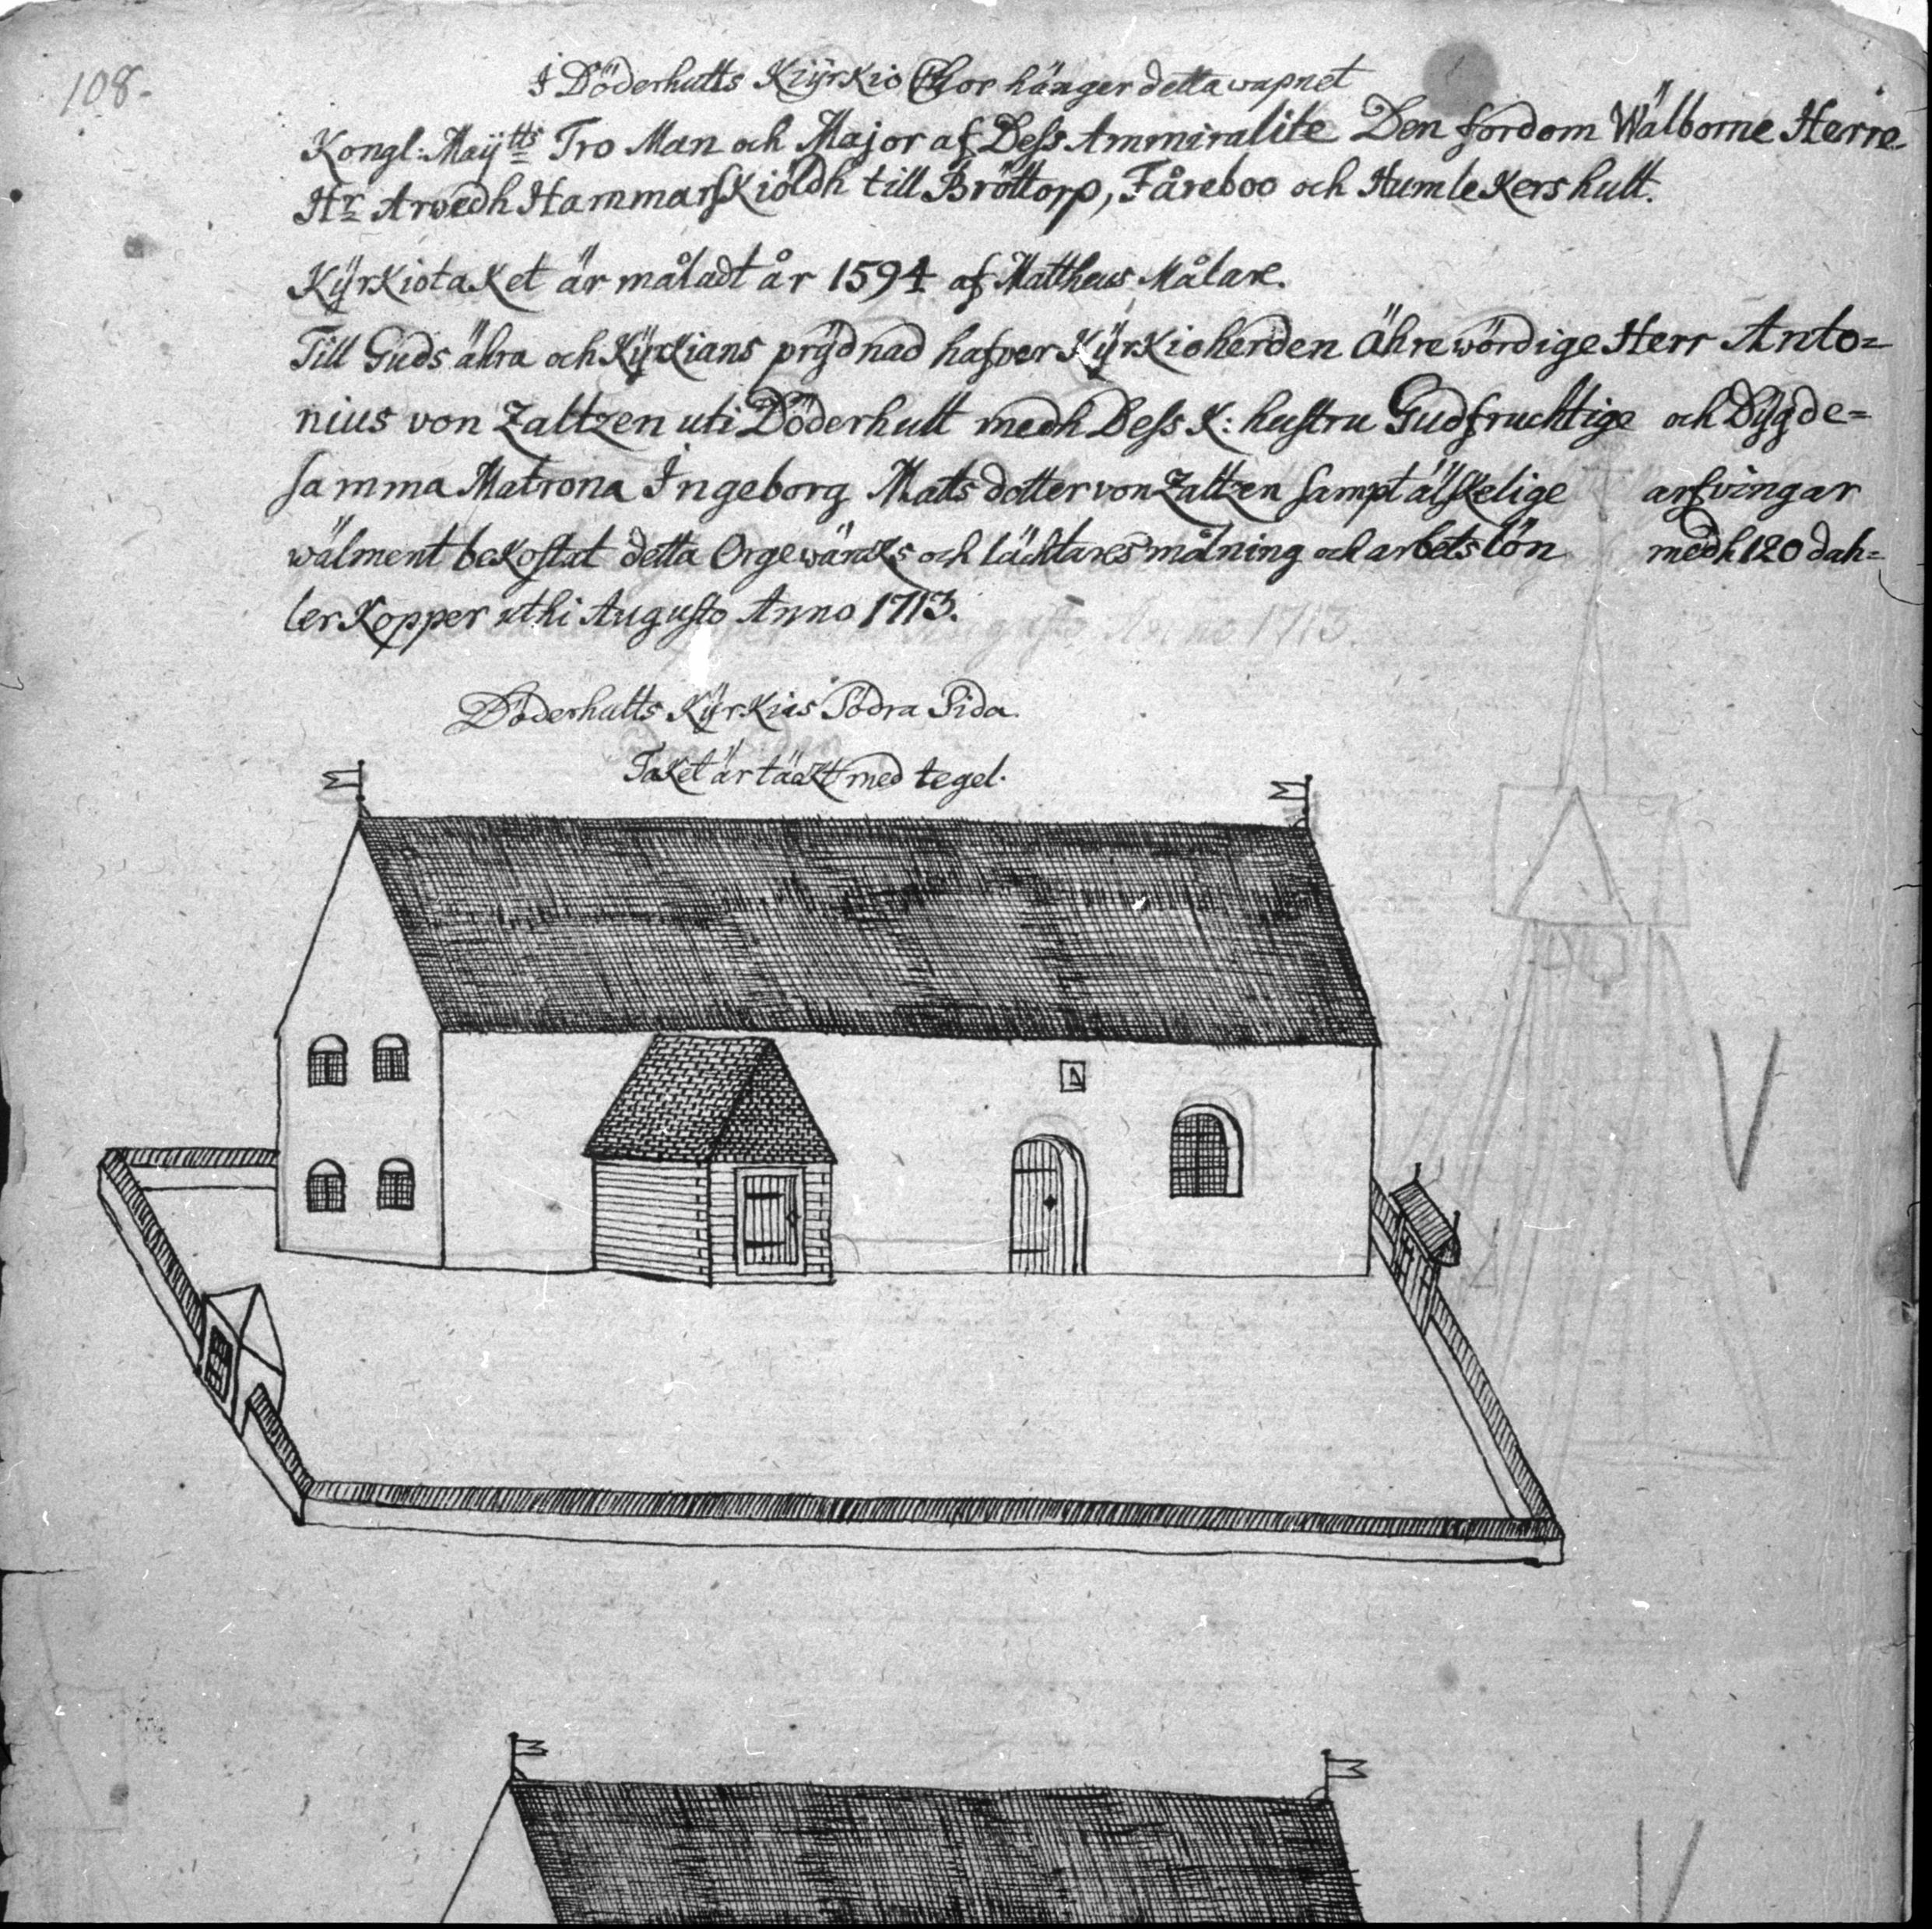 108.
I Döderhults Kÿrkio Chor hänger detta wapnet
Kongl: Maÿtts Tro Man och Major af Dess Ammiralite Den fordom Wälborne Herre
Hr Arvedh Hammarskiöldh till Bröttorp, Fåreboo och Humlekershult.
Kÿrkiotaket är måladt år 1594 af Mattheus Målare.
Till Guds ähra och Kÿrkians prÿdnad hafver Kÿrkioherden Ährewördige Herr Anto=
nius von Zaltzen uti Döderhult medh Dess K: hustru Gudfruchtige och Dygde=
samma Matrona Ingeborg Mats dotter von Zaltzen sampt älskelige arfvingar
wälment bekostat detta Orgewäncks och läcktares målning och arbetslön medh 120 dah=
ler Kopper uthi Augusto Anno 1713.
Augusto Anno 1713.
Döderhults Kÿrkias Södra Sida.
Taket är täckt med tegel.